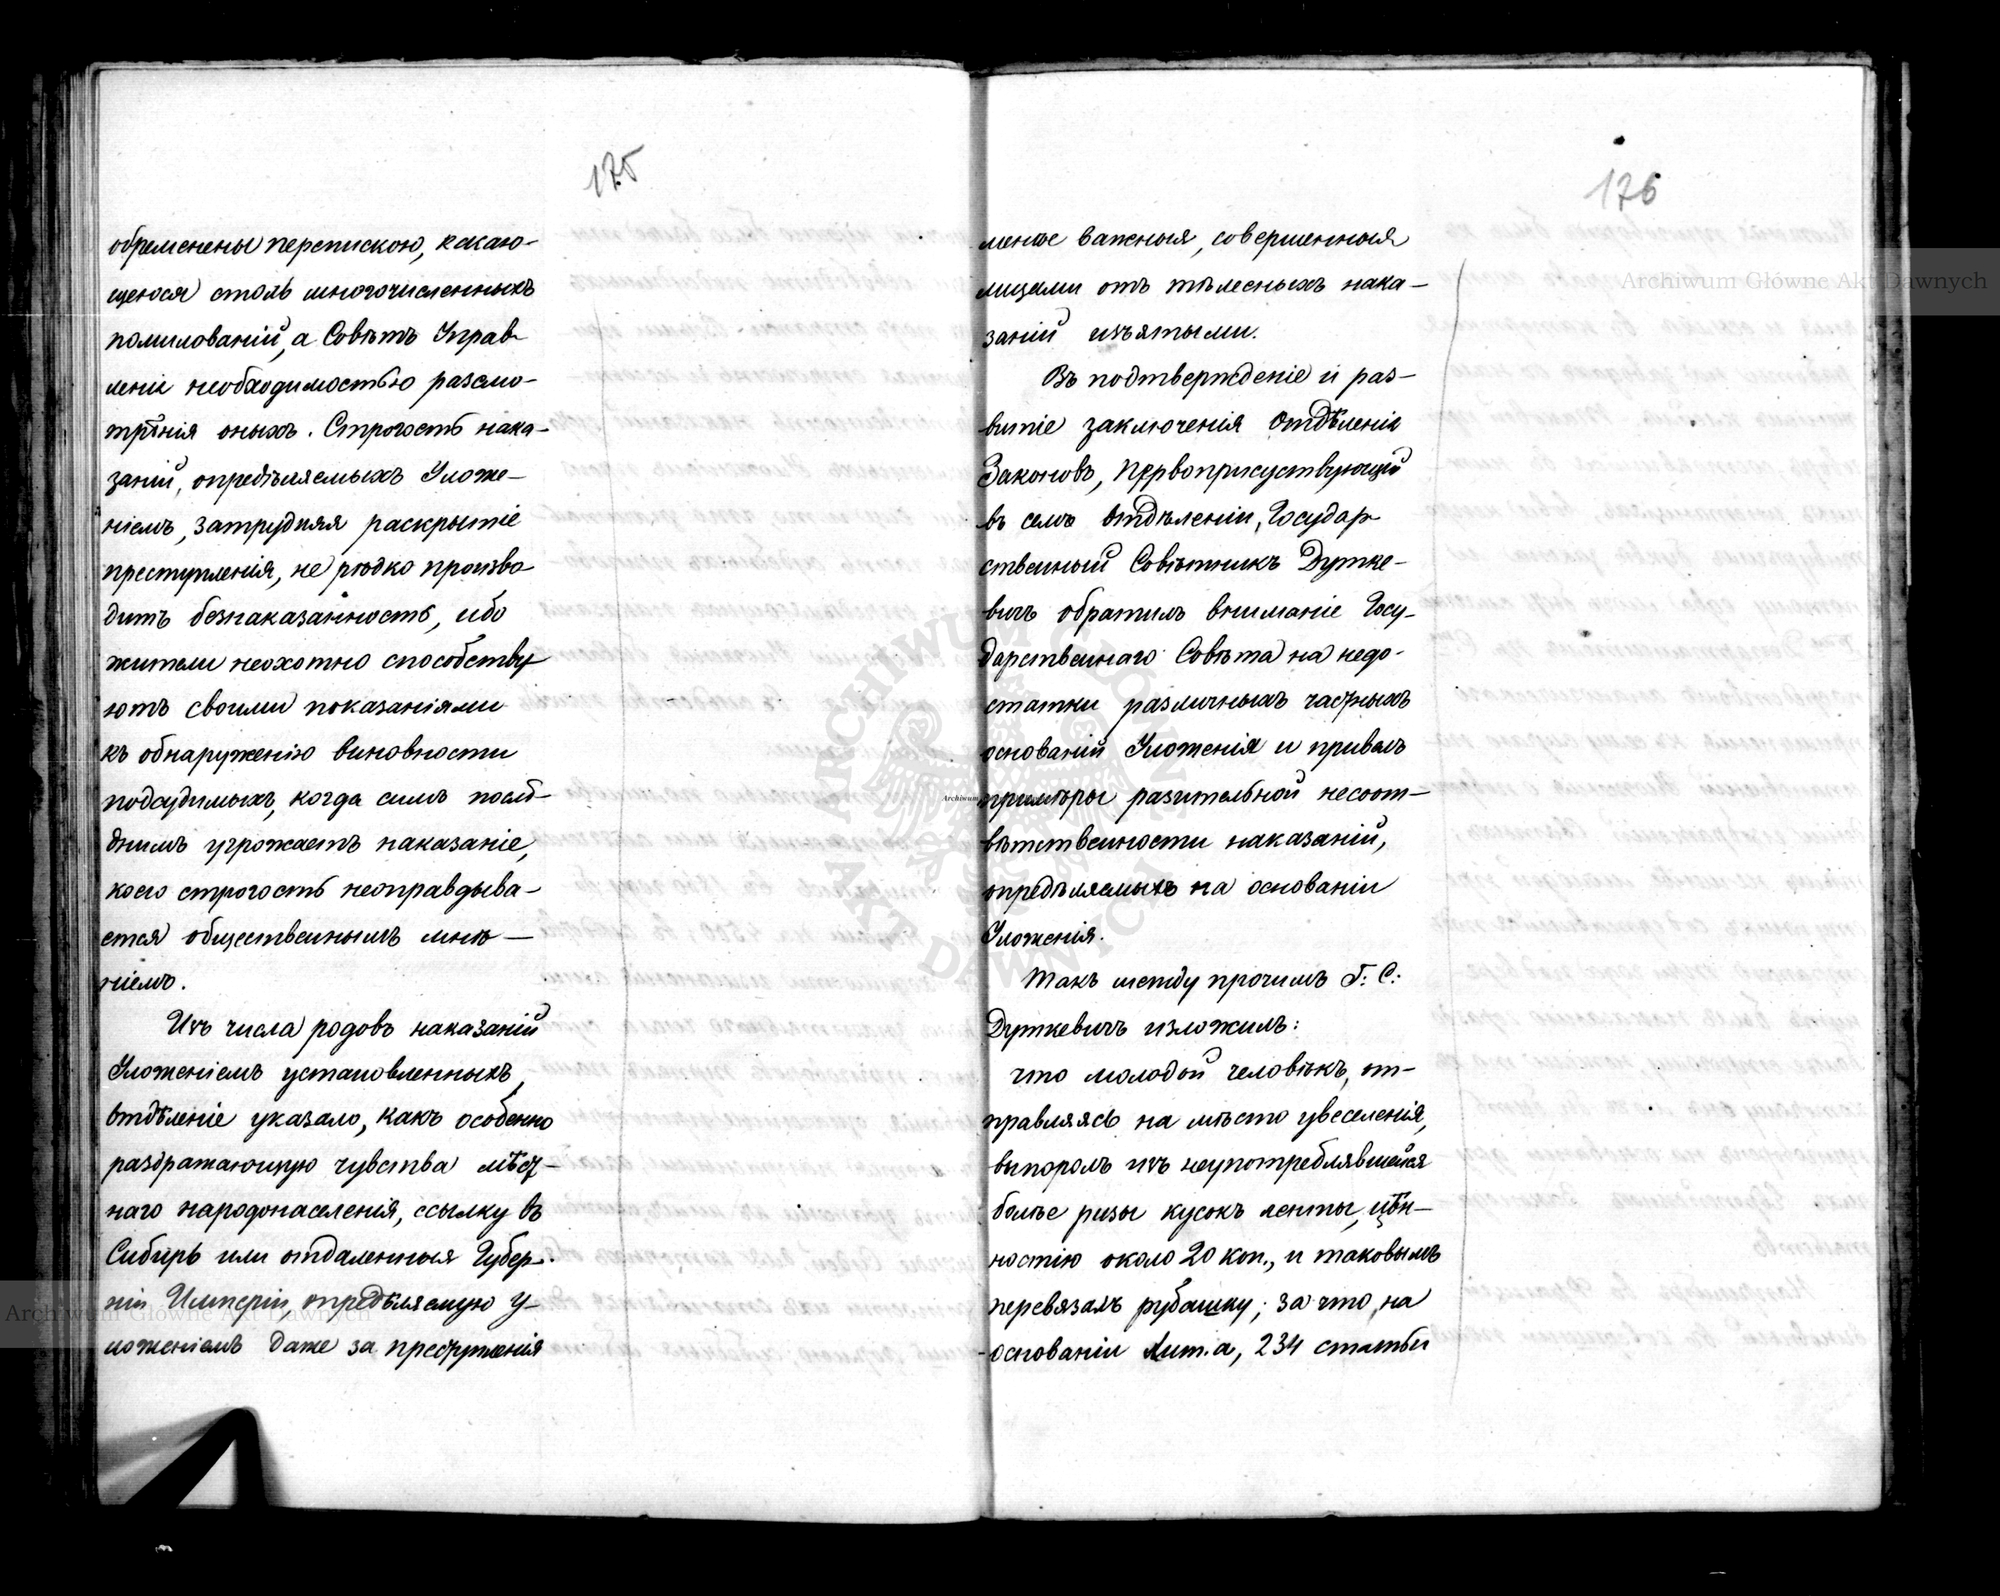 175
обременены перепискою, касаю-
щеюся столь многочисленныхъ
помилованій, а Совѣтъ Управ-
ленія необходимостью разсмо-
трѣнія оныхъ. Строгость нака-
заній, опредѣляемыхъ Уложе-
ніемъ, затрудняя раскрытіе
преступленія, не рѣдко произво
дитъ безнаказанность, ибо
жители неохотно способству
ютъ своими показаніями
къ обнаруженію виновности
подсудимыхъ, когда симъ послѣ-
днимъ угрожаетъ наказаніе,
коего строгость неоправдыва-
ется общественнымъ мнѣ-
ніемъ.
Изъ числа родовъ наказаній
Уложеніемъ установленныхъ,
Отдѣленіе указало, какъ особенно
раздражающую чувства мѣст-
наго народонаселенія, ссылку въ
Сибирь или отдаленныя Губер-
ніи Имперіи, опредѣляемую У-
ложеніемъ даже за преступленія
176
менѣе важныя, совершенныя
лицами отъ тѣлесныхъ нака-
заній изъятыми.
Въ подтвержденіе и раз-
витіе заключенія Отдѣленія
Законовъ, Первоприсуствующій
въ семъ Отдѣленіи, Государ
ственный Совѣтникъ Дутке-
вичъ обратилъ вниманіе Госу-
дарственнаго Совѣта на недо-
статки различныхъ частныхъ
основаній Уложенія и привелъ
примѣры разительной несоот-
вѣтственности наказаній,
опредѣляемыхъ на основаніи
Уложенія.
Такъ между прочимъ Г. С:
Дуткевичъ изложилъ:
что молодой человѣкъ, от-
правляясь на мѣсто увеселенія,
выпоролъ изъ неупотреблявшейся
болѣе ризы кусокъ ленты, цѣн-
ностію около 20 коп., и таковымъ
перевязалъ рубашку; за что, на
основаніи Лит. а, 234 статьи
Archiwum Główne Akt Dawnych
Archiwum Główne Akt Dawnych
ARCHIWUM GŁÓWNE
AKT DAWNYCH